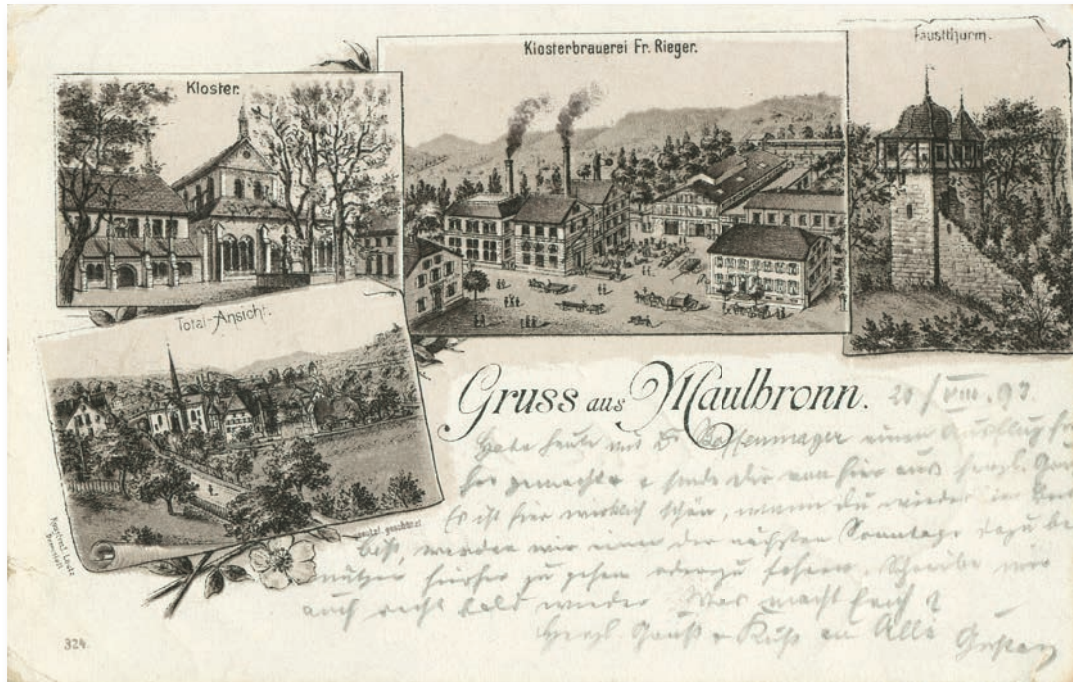 Klosterbrauerei Fr. Rieger.
Faustthurm.
Kloster.
Total-Ansicht.
Gruss aus Maulbronn.
Habe heute mit einen Ausflug
her gemacht & sende dir von hier aus herzl.
Es ist hier wirklich schön, wenn du wieder
bist, werden wir einen der nächsten Sonntage dazu be
nützen hierher zu gehen oder zu fahren. Schreibe mir
auch recht bald wieder. Was macht Erich?
Herzl. Gruß & Kuß an Alle
324.